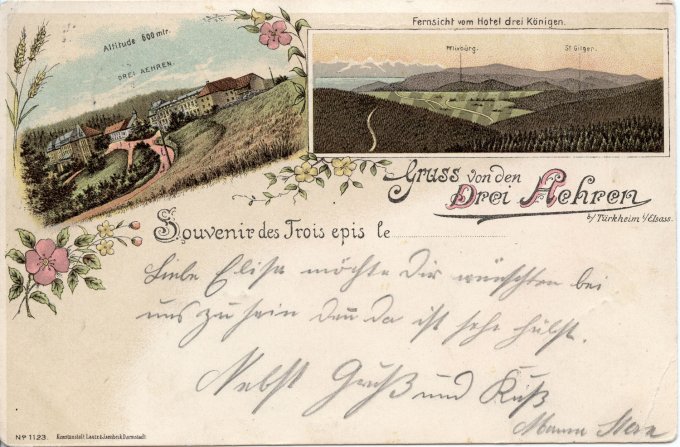 Fernsicht vom Hotel drei Königen.
Altitude 600 mtr.
DREI AEHREN.
Minbürg.
St Gilgen.
Gruss von den
Drei Aehren
b/ Türkheim i/Elsass.
Souvenir des Trois epis le
Liebe Elisa möchte Dir wünschten bei
uns zu sein denn da ist sehr hübst.
Nebst Gruß und Kuß
Nº 1123. Kunstanstalt Lautz & Isenbeck Darmstadt